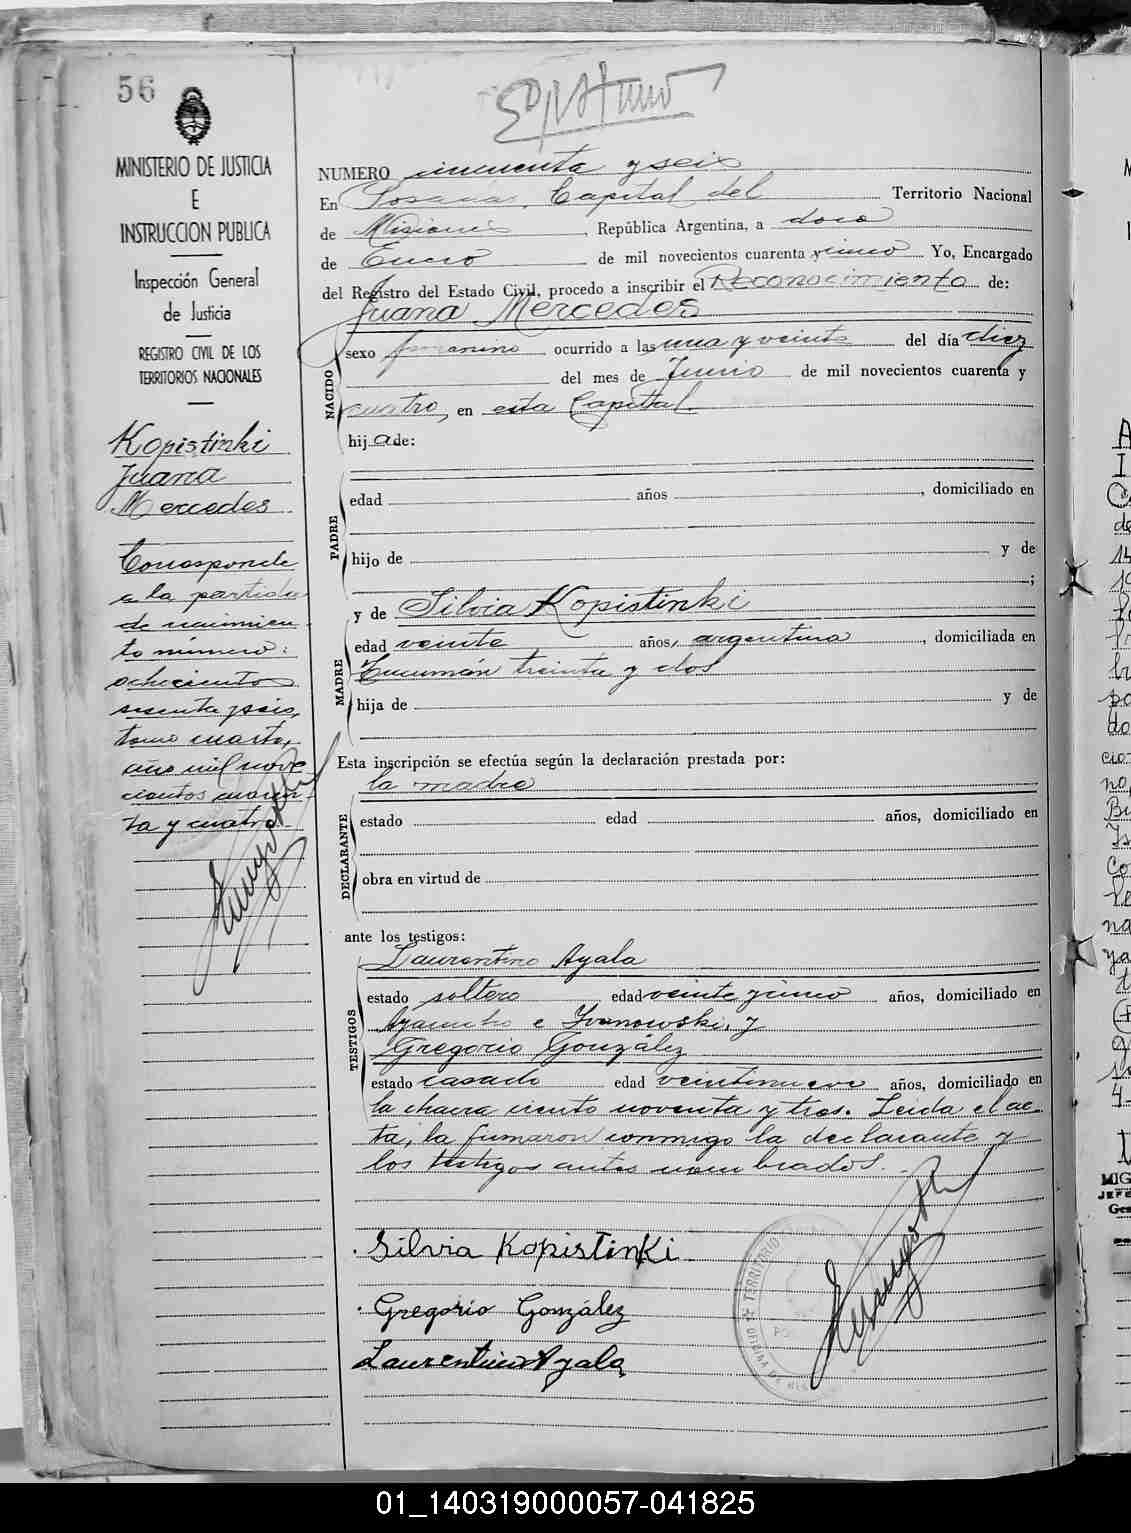 56
MINISTERIO DE JUSTICIA
E
INSTRUCCION PUBLICA
Inspección General
de Justicia
REGISTRO CIVIL DE LOS
TERRITORIOS NACIONALES
Kopistinki
Juana
Mercedes
Corresponde
a la partida
de nacimien
to número:
ochocientos
sesenta y seis,
tomo cuarto,
año mil nove
cientos cuaren-
ta y cuatro.
NUMERO cincuenta y seis
En Posadas, Capital del Territorio Nacional
de Misiones, República Argentina, a doce
de Enero de mil novecientos cuarenta y cinco Yo, Encargado
del Registro del Estado Civil, procedo a inscribir el Reconocimiento de:
Juana Mercedes
NACIDO
sexo femenino ocurrido a las una y veinte del día diez
del mes de Junio de mil novecientos cuarenta y
cuatro, en esta Capital.
hija de:
PADRE
edad años , domiciliado en
hijo de y de
;
y de Silvia Kopistinki
MADRE
edad veinte años, argentina, domiciliada en
Tucumán treinta y dos
hija de y de
Esta inscripción se efectúa según la declaración prestada por:
la madre
DECLARANTE
estado edad años, domiciliado en
obra en virtud de
ante los testigos:
Laurentino Ayala
TESTIGOS
estado soltero edad veinte y cinco años, domiciliado en
Ayacucho e Ivanowski, y
Gregorio González
estado casado edad veintinueve años, domiciliado en
la chacra ciento noventa y tres. Leida el ac-
ta, la firmaron conmigo la declarante y
los testigos antes nombrados.
Silvia Kopistinki
Gregorio González
Laurentino Ayala
01_140319000057-041825